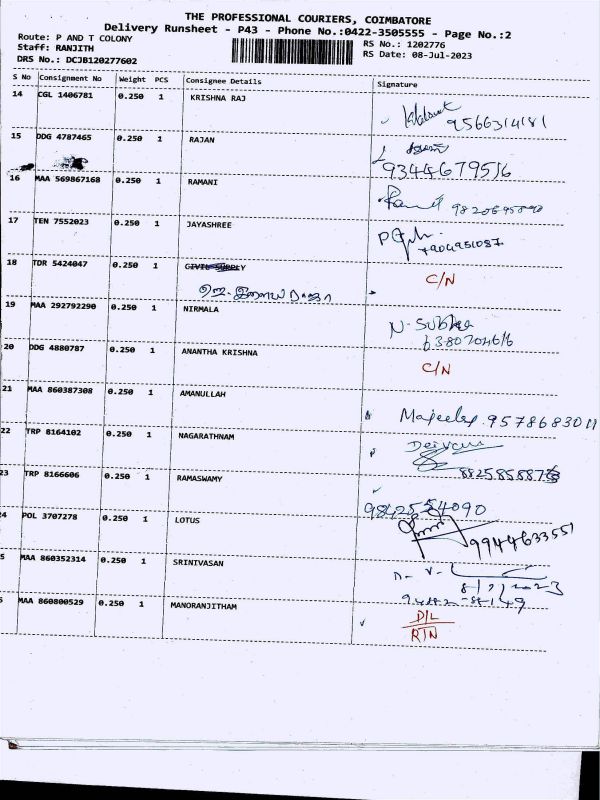 THE PROFESSIONAL COURIERS, COIMBATORE
Delivery Runsheet - P43 - Phone No.:0422-3505555 - Page No.:2
Route: P AND T COLONY
Staff: RANJITH RS No.: 1202776
DRS No.: DCJB120277602 RS Date: 08-Jul-2023
S No Consignment No Weight PCS Consignee Details Signature
14 CGL 1406781 0.250 1 KRISHNA RAJ
9566314181
15 DDG 4787465 0.250 1 RAJAN
9344679516
16 MAA 569867168 0.250 1 RAMANI
17 TEN 7552023 0.250 1 JAYASHREE
18 TDR 5424047 0.250 1 CIVIL SUPPLY C/N
19 MAA 292792290 0.250 1 NIRMALA
N. Subha
20 DDG 4880787 0.250 1 ANANTHA KRISHNA C/N
21 MAA 860387308 0.250 1 AMANULLAH
22 TRP 8164102 0.250 1 NAGARATHNAM
23 TRP 8166606 0.250 1 RAMASWAMY
4 POL 3707278 0.250 1 LOTUS
9944633551
5 MAA 860352314 0.250 1 SRINIVASAN
8/7/2023
MAA 860800529 0.250 1 MANORANJITHAM D/L
RTN